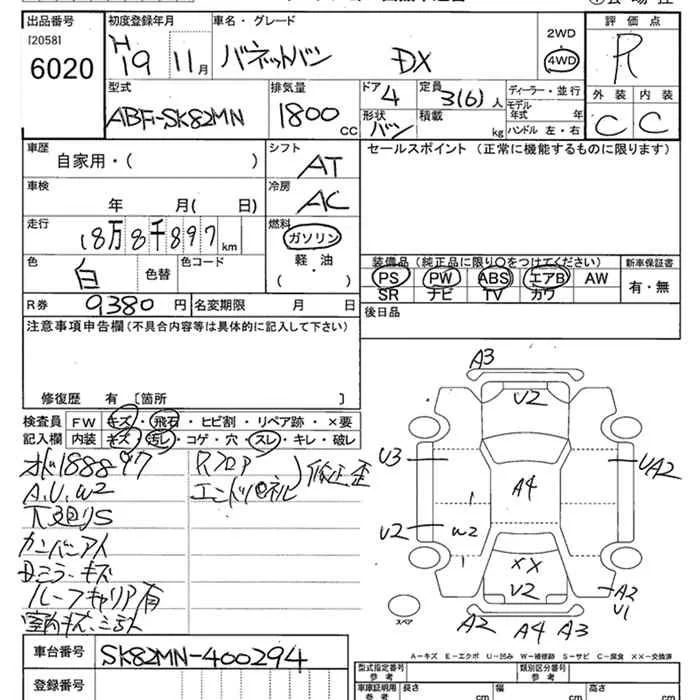 出品番号 初度登録年月 車名・グレード 評価点
[2058]
6020 H19 11月 バネットバン DX 2WD 4WD R
型式 排気量 ドア 定員 ディーラー・並行 外装 内装
ABF-SK82MN 1800cc 4 3(6)人 モデル年式 年 C C
形状 バン 積載 kg ハンドル 左・右
車歴 シフト セールスポイント (正常に機能するものに限ります)
自家用・( ) AT
車検 冷房
年 月( 日) AC
走行 燃料
18万8千897km ガソリン
色 色コード 軽・油 装備品 (純正品に限り○をつけてください) 新車保証書
白 色替 ( ) PS PW ABS エアB AW 有・無
SR ナビ TV カワ
R券 9380円 名変期限 月 日 後日品
注意事項申告欄(不具合内容等は具体的に記入して下さい)
修復歴 有 [箇所 ]
検査員 FW キズ・飛石・ヒビ割・リペア跡・×要
記入欄 内装 キズ・汚レ・コゲ・穴・スレ・キレ・破レ
A.U.W2 エンドパネル 修正歪
下廻りS
カンバンアト
ミラーキズ
ルーフキャリア有
A3
U2
U3 UA2
A4
U2 W2
XX
U2 A2
U1
スペア A2 A4 A3
A-キズ E-エクボ U-凹み W-補修跡 S-サビ C-腐食 XX-交換済
車台番号 SK82MN-400294 型式指定番号 参考 類別区分番号 参考
登録番号 車庫証明用 参考 長さ cm 幅 cm 高さ cm